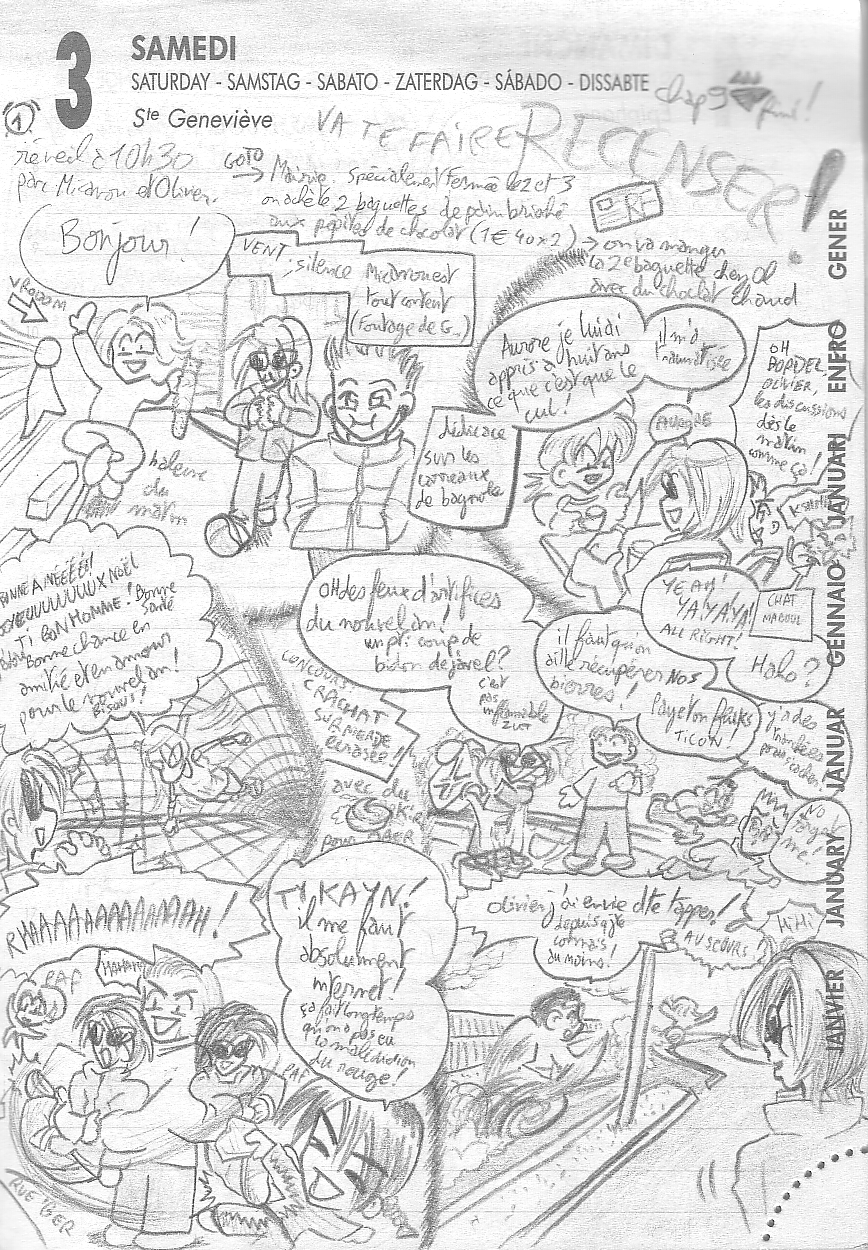 3
SAMEDI
SATURDAY - SAMSTAG - SABATO - ZATERDAG - SÁBADO - DISSABTE
Ste Geneviève
chap 9
fini!
1
VA TE FAIRE RECENSER!
réveil à 10h30
par Micarou et Olivier.
GOTO
→ Mairie, spécialement fermée le 2 et 3
on achète 2 baguettes de pain brioché
aux pépites de chocolat (1€40x2)
→ on va manger
la 2e baguette chez Ol
avec du chocolat chaud
RF
Bonjour!
VROOOM
VENT; silence
Micarou est
tout content
(foutage de G...)
haleine
du
matin
Aurore je lui di
appris à huit ans
ce que c'est que le
cul!
il m'a
traumatisée
AURORE
OH
BORDEL
OLIVIER,
les discussions
dès le
matin
comme ça!
dédicace
sur les
carreaux
de bagnole
BONNE ANÉÉÉÉ!!
JOYEUUUUUUX NOËL
TI BONHOMME! Bonne
santé
Bonne chance en
amitié et en amour
pour le nouvel an!
bisous!
OH des feux d'artifices
du nouvel an!
un pti coup de
bidon de javel?
c'est
pas
inflammable
ZUT
YEAH!
YA!YA!YA!
ALL RIGHT!
CHAT
MABOUL
Hoho?
CONCOURS!
CRACHAT
SUR MERDE
ECRASÉE!
avec du
KIR
pour
il faut qu'on
aille récupérer NOS
bierres!
Payeton
TICON!
y'a des
NO
me!
RHAAAAAAAAAAAAAH!
PAF
HAHAHA
TYKAYN!
il me faut
absolument
internet!
ça fait longtemps
qu'on a pas eu
la malédiction
du rouge!
PAF
Olivier j'ai envie d'te tapper!
depuis qu'je
connais
du moins!
AU SECOURS!
HiHi
RUE IGER
JANVIER JANUARY JANUAR GENNAIO JANUARI ENERO GENER